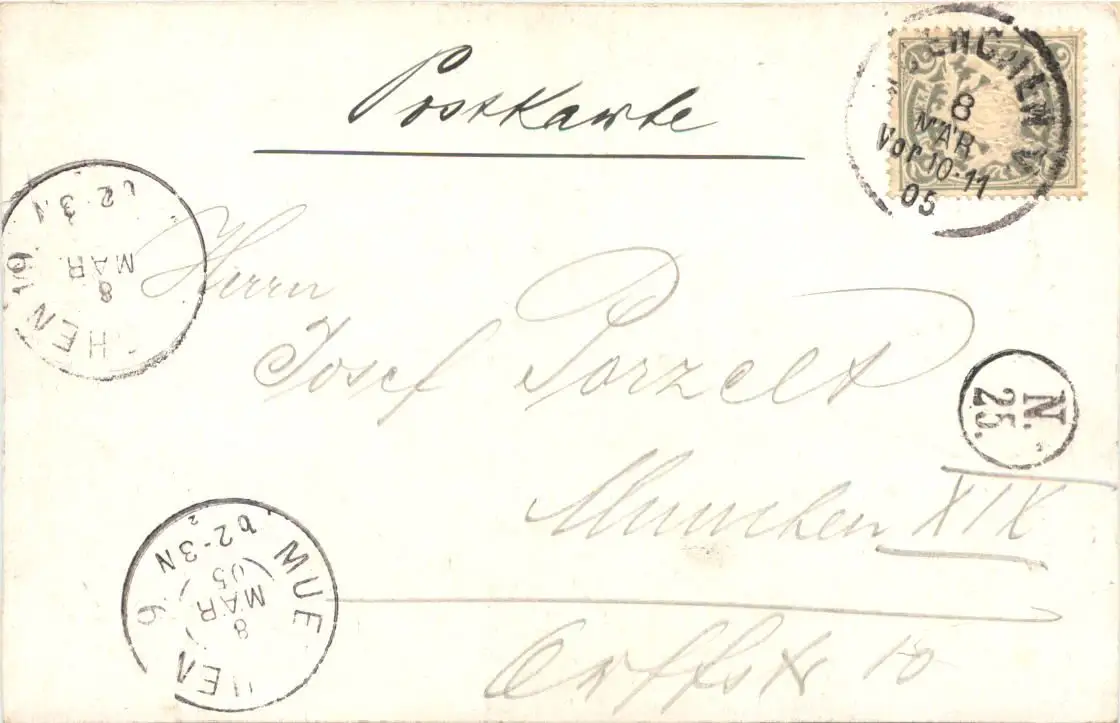 Postkarte
8
MÄR
Vor 10-11
05
Herrn
Josef Porzelt
München XIX
Orffstr 10
N.
25.
HEN 19.
8
MÄR
2-3 N
MUE HEN
8
MÄR
05
2-3 N